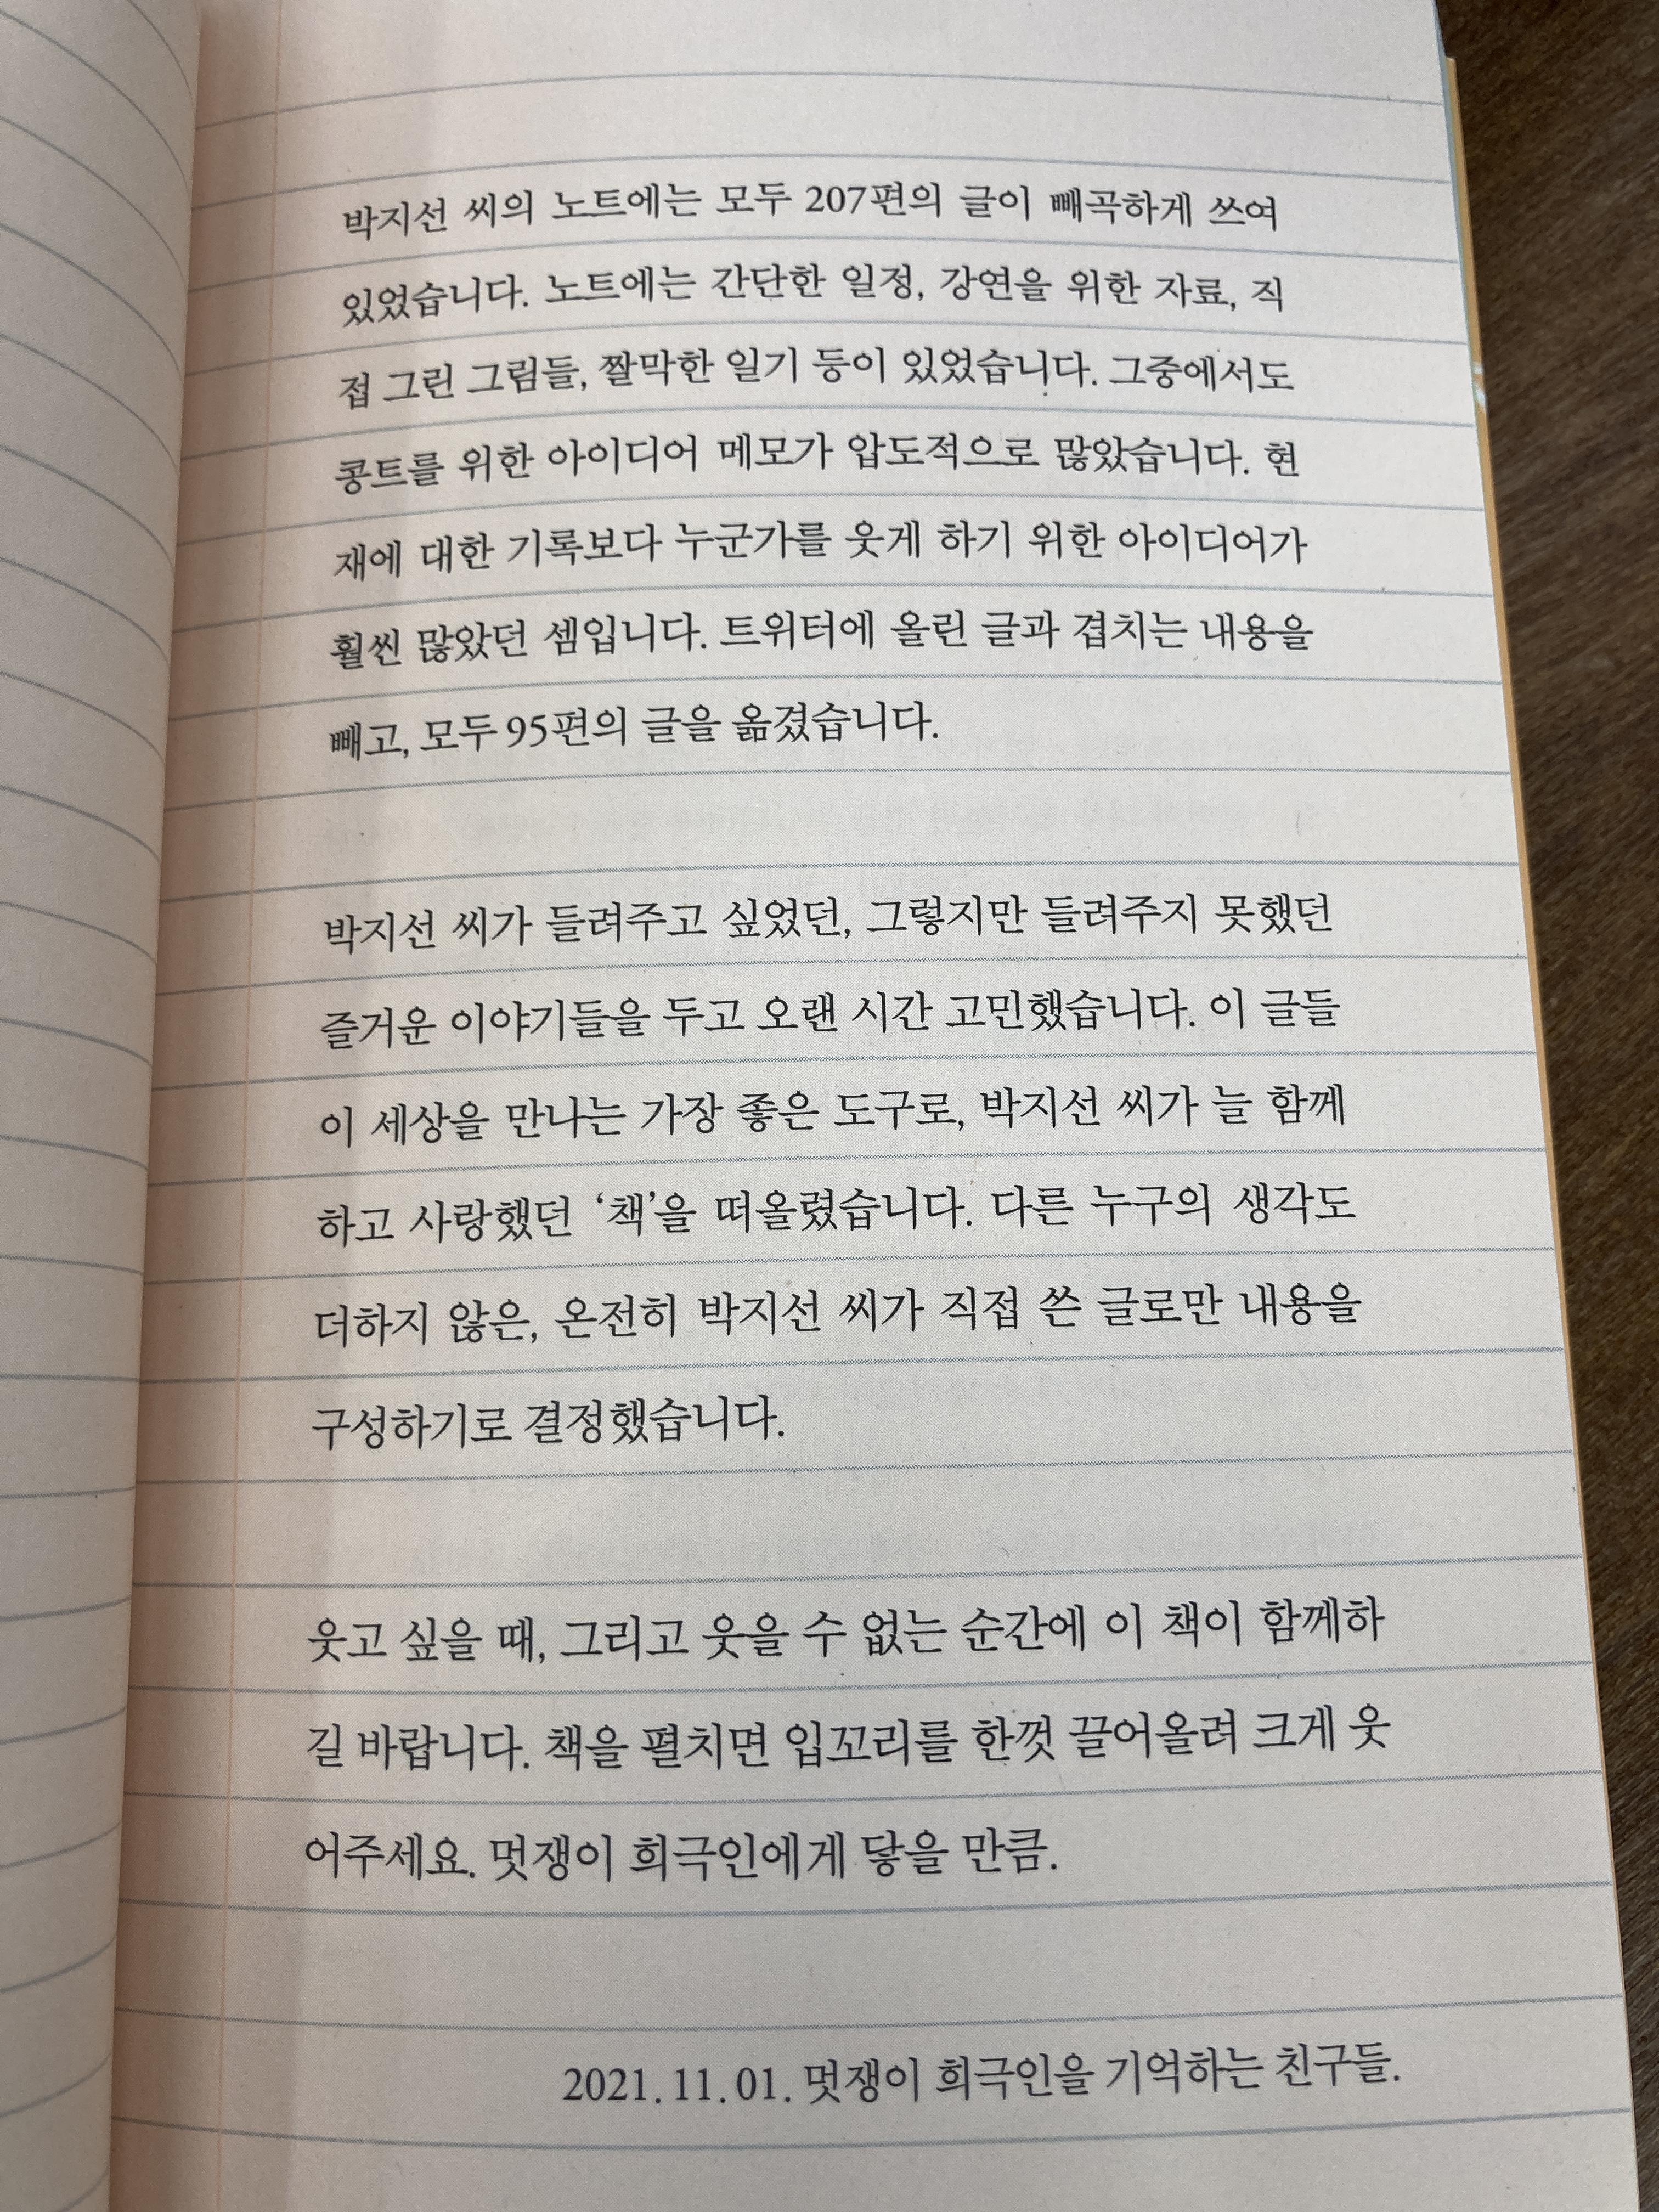 박지선 씨의 노트에는 모두 207편의 글이 빼곡하게 쓰여
있었습니다. 노트에는 간단한 일정, 강연을 위한 자료, 직
접 그린 그림들, 짤막한 일기 등이 있었습니다. 그중에서도
콩트를 위한 아이디어 메모가 압도적으로 많았습니다. 현
재에 대한 기록보다 누군가를 웃게 하기 위한 아이디어가
훨씬 많았던 셈입니다. 트위터에 올린 글과 겹치는 내용을
빼고, 모두 95편의 글을 옮겼습니다.
박지선 씨가 들려주고 싶었던, 그렇지만 들려주지 못했던
즐거운 이야기들을 두고 오랜 시간 고민했습니다. 이 글들
이 세상을 만나는 가장 좋은 도구로, 박지선 씨가 늘 함께
하고 사랑했던 ‘책’을 떠올렸습니다. 다른 누구의 생각도
더하지 않은, 온전히 박지선 씨가 직접 쓴 글로만 내용을
구성하기로 결정했습니다.
웃고 싶을 때, 그리고 웃을 수 없는 순간에 이 책이 함께하
길 바랍니다. 책을 펼치면 입꼬리를 한껏 끌어올려 크게 웃
어주세요. 멋쟁이 희극인에게 닿을 만큼.
2021. 11. 01. 멋쟁이 희극인을 기억하는 친구들.